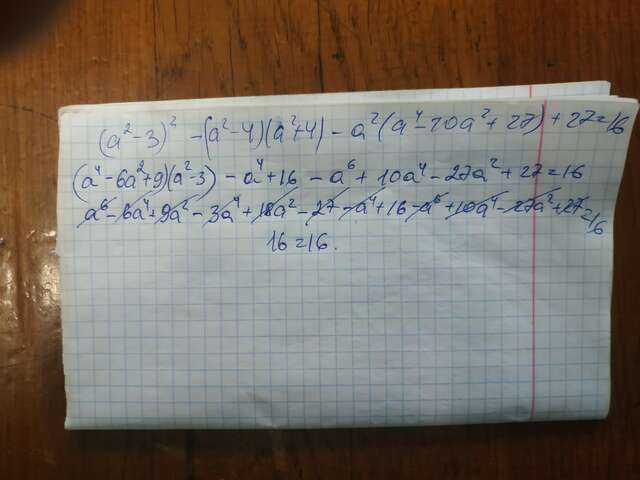 (a²-3)² -(a²-4)(a²+4) - a²(a⁴-10a²+27) + 27=16
(a⁴-6a²+9)(a²-3) - a⁴+16 - a⁶ + 10a⁴ - 27a² + 27 = 16
a⁶ - 6a⁴ + 9a² - 3a⁴ + 18a² - 27 - a⁴ + 16 - a⁶ + 10a⁴ - 27a² + 27 = 16
16 = 16.